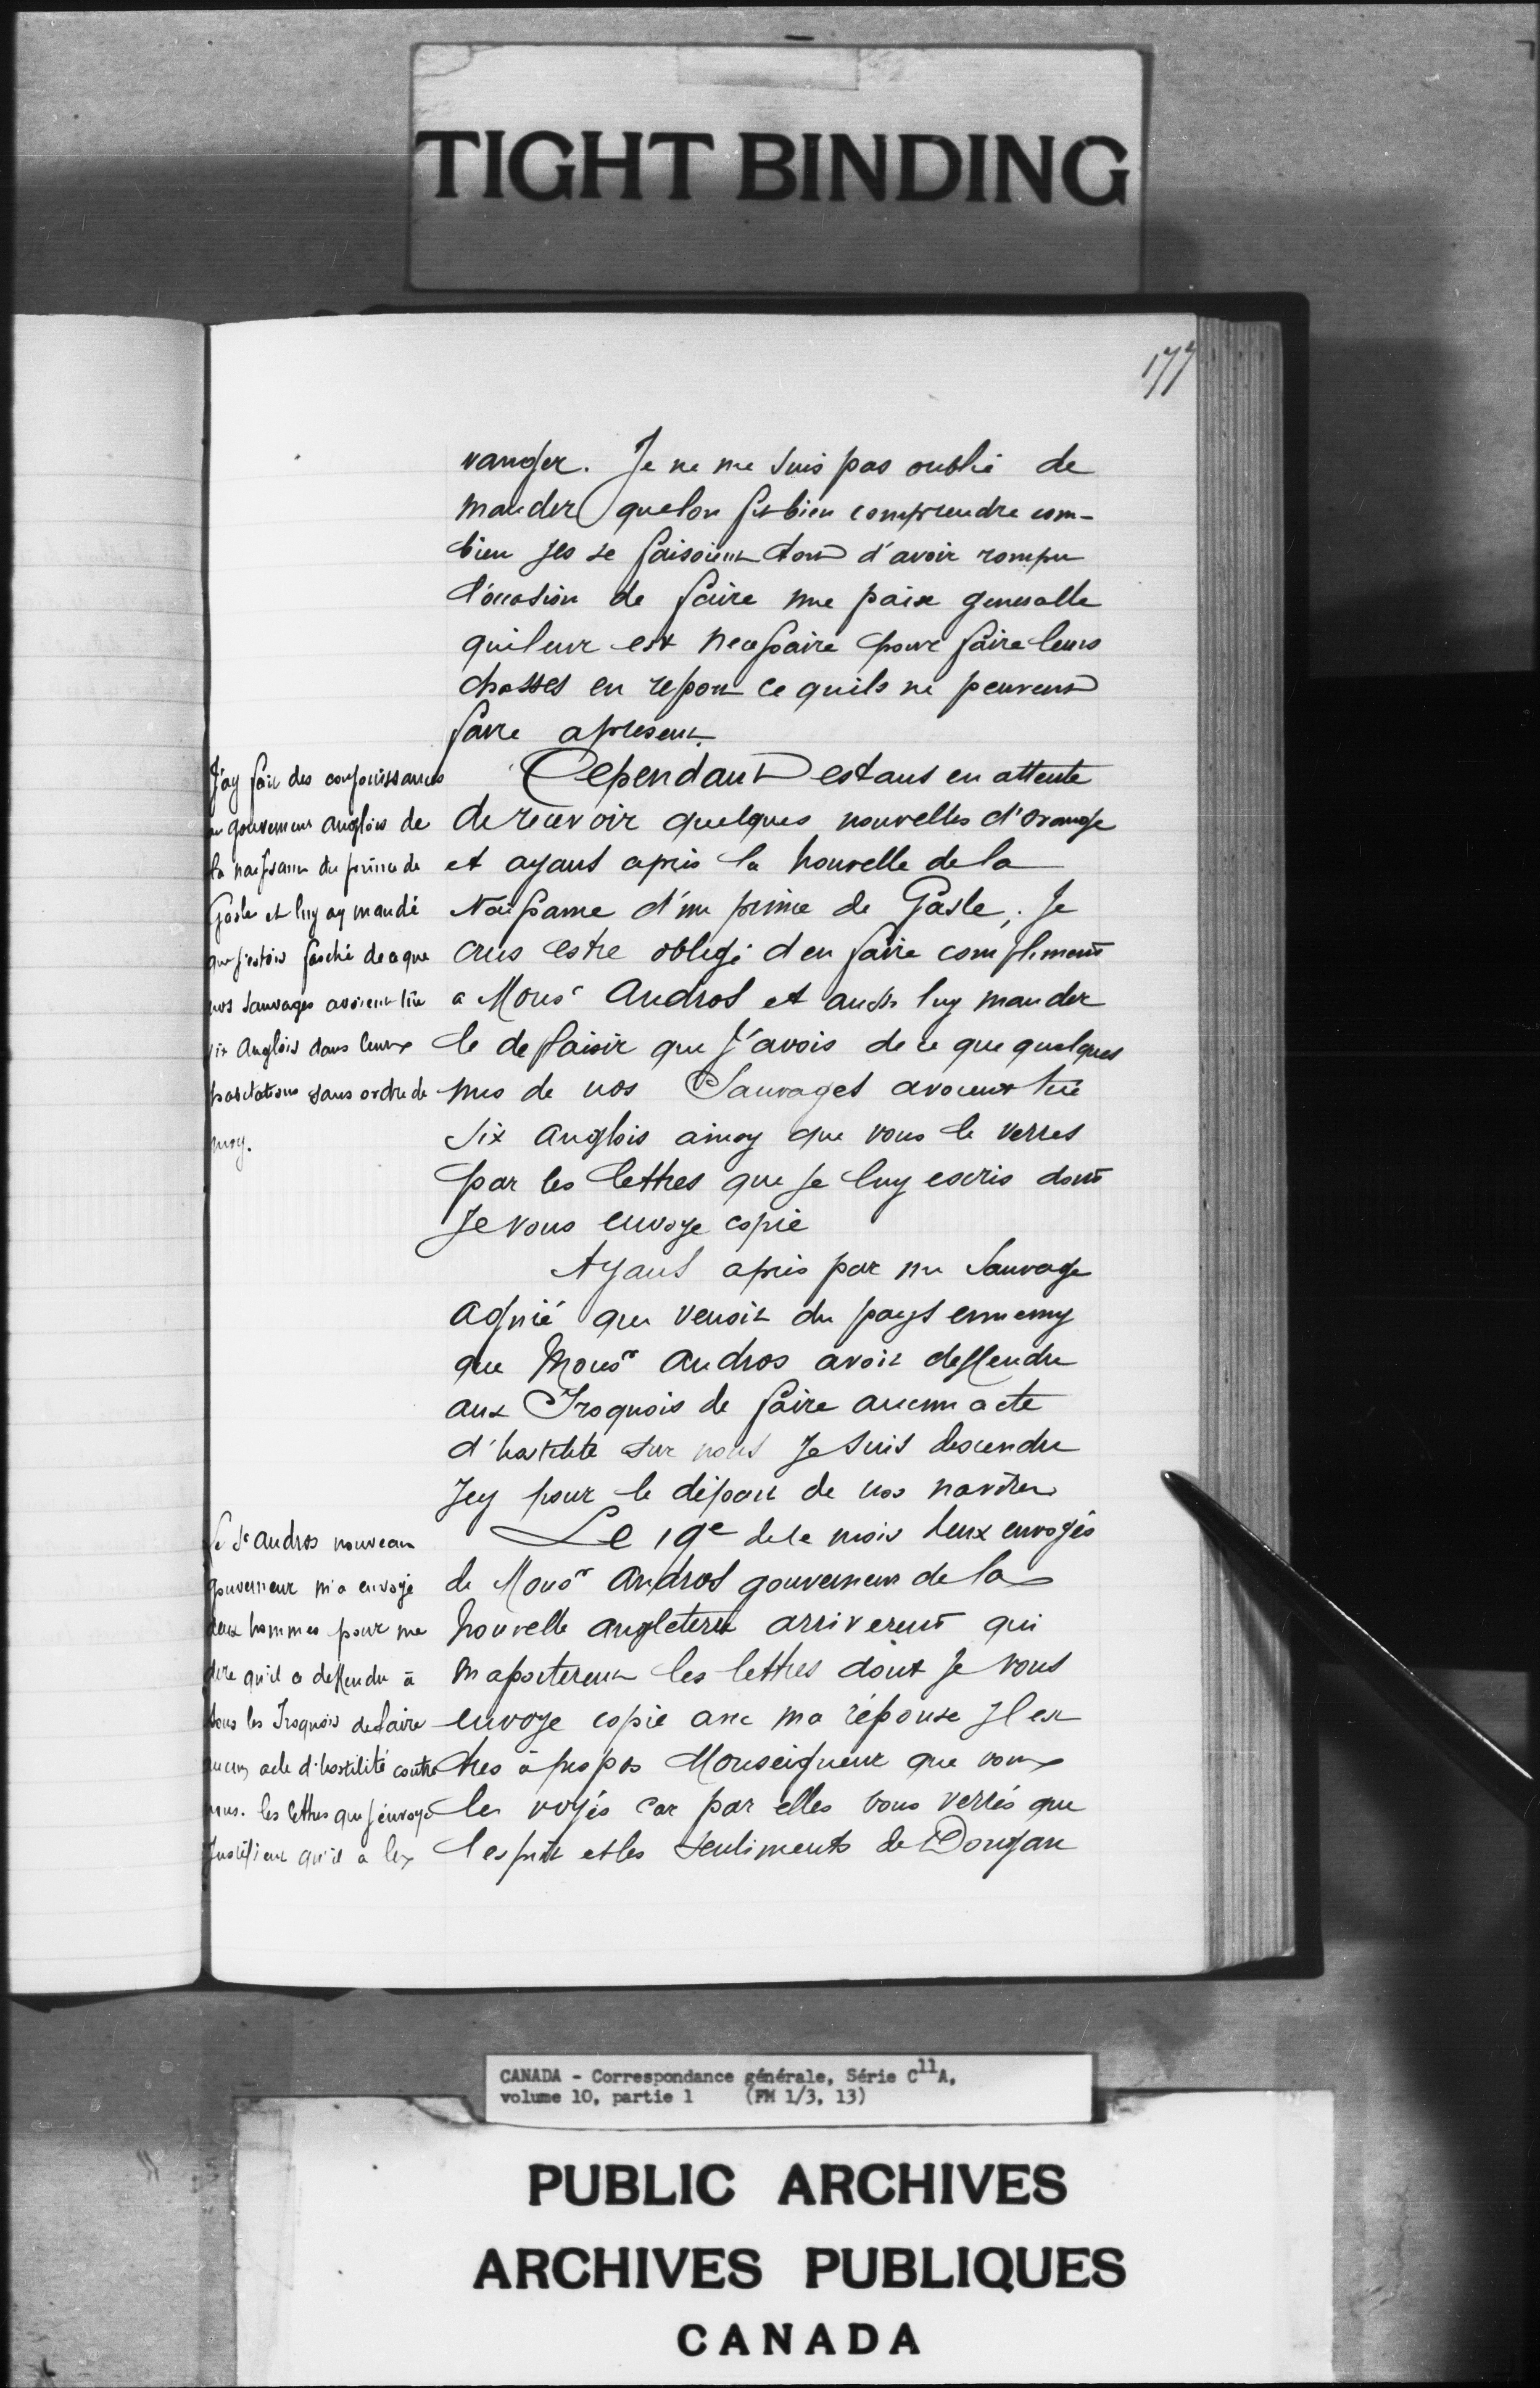 TIGHT BINDING
177
vanger. Je ne me suis pas oublié de
mander quelon fit bien comprendre com-
bien Jls se faisoient tort d'avoir rompu
l'occasion de faire une paix generalle
quileur est necessaire pour faire leurs
chasses en repos ce quils ne peuvent
faire apresent.
Cependant estant en attente
de recevoir quelques nouvelles d'orange
et ayant apris la nouvelle de la
Naissance d'un prince de Gasle, Je
crus estre obligé d'en faire compliment
a Monsr Andros et aussi luy mander
le deplaisir que J'avois de ce que quelques
uns de nos Sauvages avoient tué
six Anglois ainsy que vous le verrés
par les lettres que Je luy escris dont
Je vous envoye copie
J'ay fait des conjouissances
au gouverneur anglois de
la naissance du prince de
Gasle et luy ay mandé
que j'estois fasché de ce que
nos sauvages avoient tué
six Anglois dans leurs
habitations sans ordre de
moy.
Ayant apris par un Sauvage
Agnié qui venoit du pays ennemy
que Monsr Andros avoit deffendu
aux Iroquois de faire aucun acte
d'hostilité sur nous Je suis descendu
Jcy pour le départ de nos navires
Le 19e de ce mois deux envoyés
de Monsr Andros gouverneur de la
Nouvelle angleterre arriverent qui
m'aporterent les lettres dont Je vous
envoye copie avec ma réponse Jl est
tres à propos Monseigneur que vous
les voyés car par elles vous verrés que
l'esprit et les sentiments de Dongan
Le Sr Andros nouveau
gouverneur m'a envoyé
deux hommes pour me
dire qu'il a deffendu à
tous les Iroquois de faire
aucun acte d'hostilité contre
nous. les lettres que j'envoye
Justifient qu'il a les
CANADA - Correspondance générale, Série C11A,
volume 10, partie 1 (FM 1/3, 13)
PUBLIC ARCHIVES
ARCHIVES PUBLIQUES
CANADA